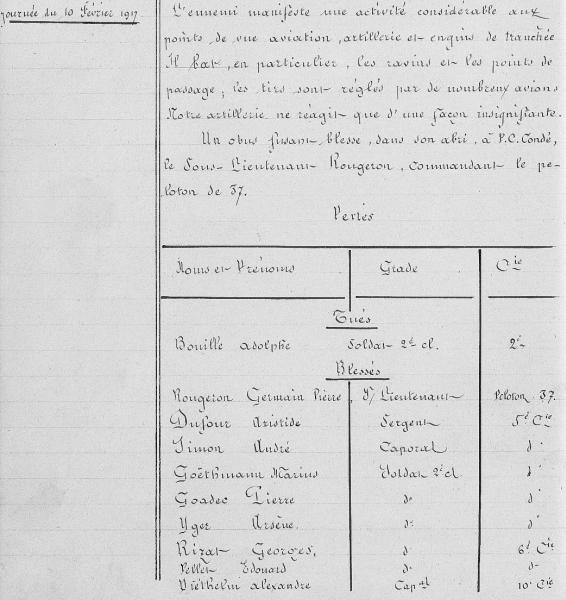 Journée du 10 Février 1917
L'ennemi manifeste une activité considérable aux
points de vue aviation, artillerie et engins de tranchée
Il bat, en particulier, les ravins et les points de
passage; les tirs sont réglés par de nombreux avions
Notre artillerie ne réagit que d'une façon insignifiante.
Un obus fusant blesse, dans son abri, à P.C. Condé,
le Sous-Lieutenant Rougeron, commandant le pe-
loton de 37.
Pertes
Noms et Prénoms Grade Cie
Tués
Bouillé Adolphe Soldat 2e cl. 2e
Blessés
Rougeron Germain Pierre S/Lieutenant Peloton 37.
Dufour Aristide Sergent 5e Cie
Simon André Caporal do
Goëthmann Marius Soldat 2e cl do
Goadec Pierre do do
Yger Arsène do do
Rizat Georges. do 6e Cie
Pellet Edouard do do
Viethelin Alexandre Capal 10e Cie